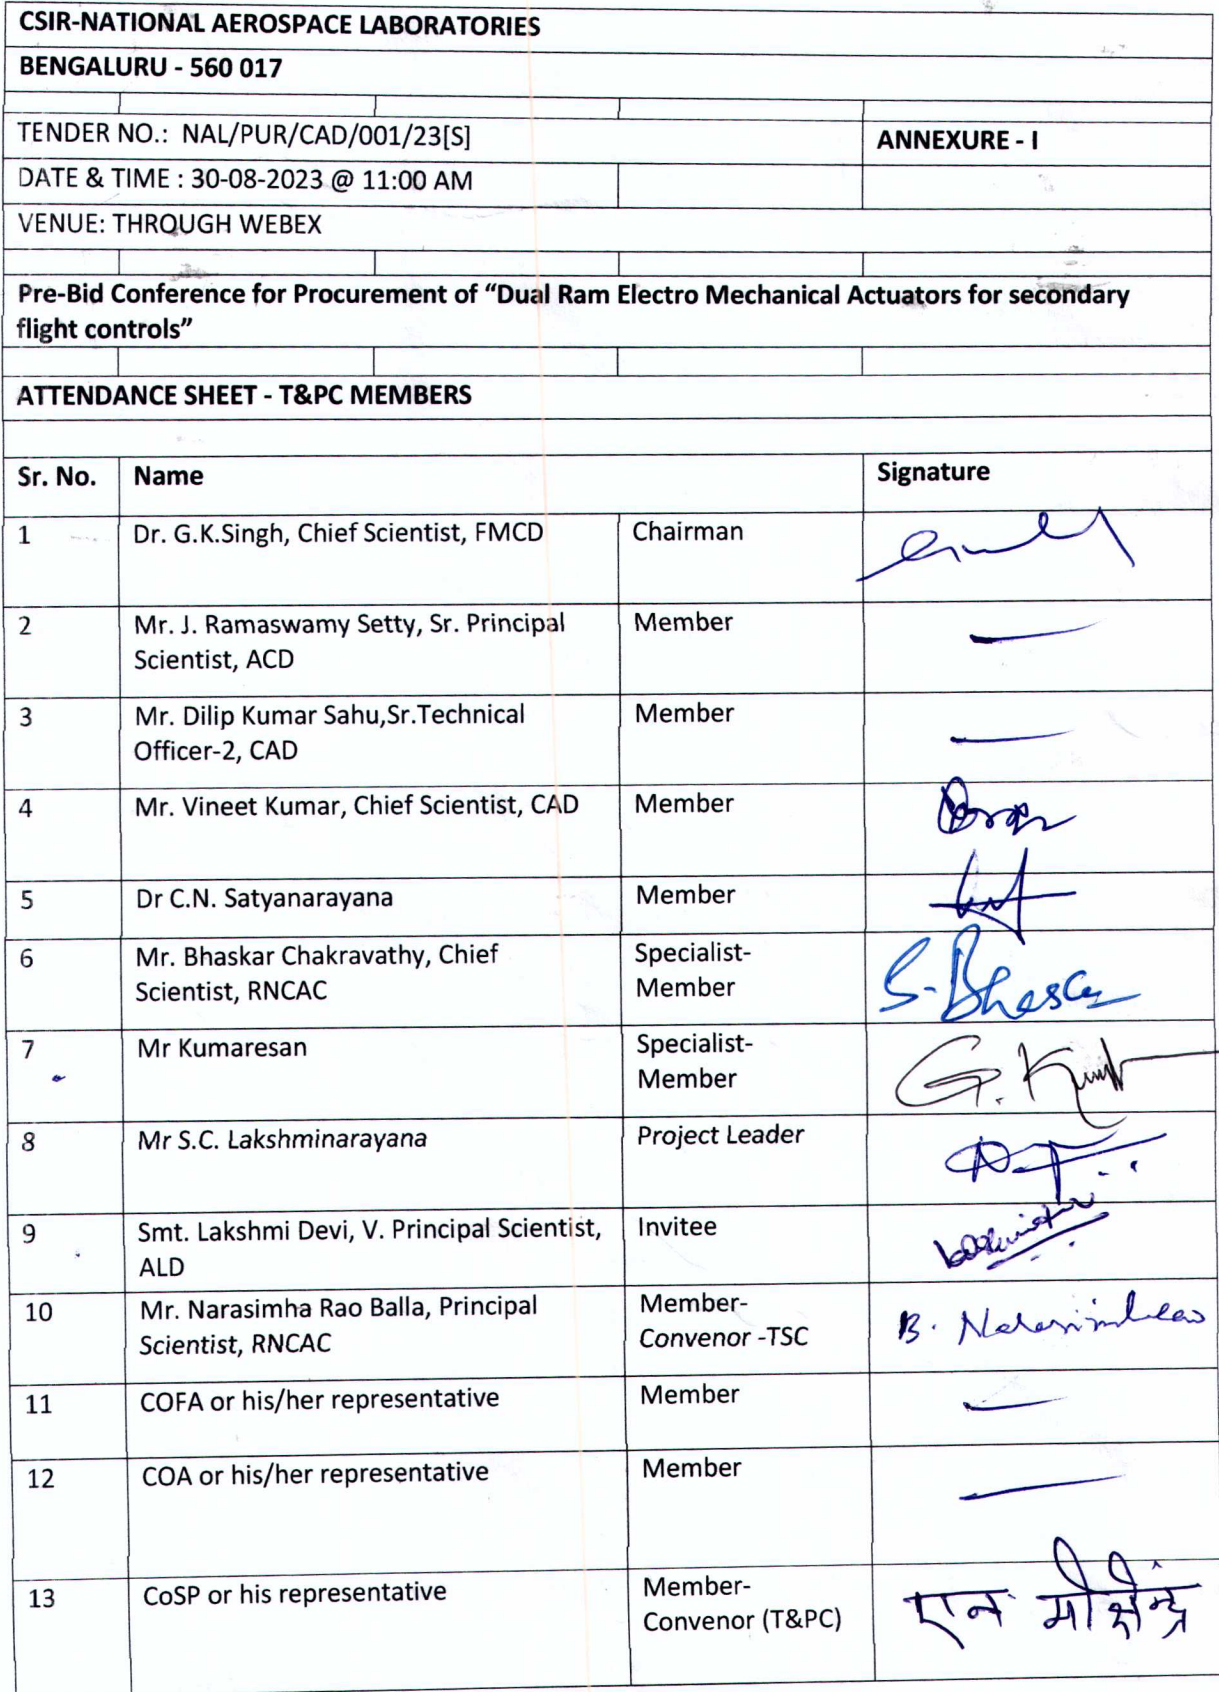 CSIR-NATIONAL AEROSPACE LABORATORIES
BENGALURU - 560 017
TENDER NO.: NAL/PUR/CAD/001/23[S] ANNEXURE - I
DATE & TIME : 30-08-2023 @ 11:00 AM
VENUE: THROUGH WEBEX
Pre-Bid Conference for Procurement of “Dual Ram Electro Mechanical Actuators for secondary
flight controls”
ATTENDANCE SHEET - T&PC MEMBERS
Sr. No. Name Signature
1 Dr. G.K.Singh, Chief Scientist, FMCD Chairman
2 Mr. J. Ramaswamy Setty, Sr. Principal Member
Scientist, ACD
3 Mr. Dilip Kumar Sahu,Sr.Technical Member
Officer-2, CAD
4 Mr. Vineet Kumar, Chief Scientist, CAD Member
5 Dr C.N. Satyanarayana Member
6 Mr. Bhaskar Chakravathy, Chief Specialist-
Scientist, RNCAC Member S-Bhascar
7 Mr Kumaresan Specialist-
Member G. Kum
8 Mr S.C. Lakshminarayana Project Leader
9 Smt. Lakshmi Devi, V. Principal Scientist, Invitee
ALD
10 Mr. Narasimha Rao Balla, Principal Member-
Scientist, RNCAC Convenor -TSC B. Narasimharao
11 COFA or his/her representative Member
12 COA or his/her representative Member
13 CoSP or his representative Member-
Convenor (T&PC) एन